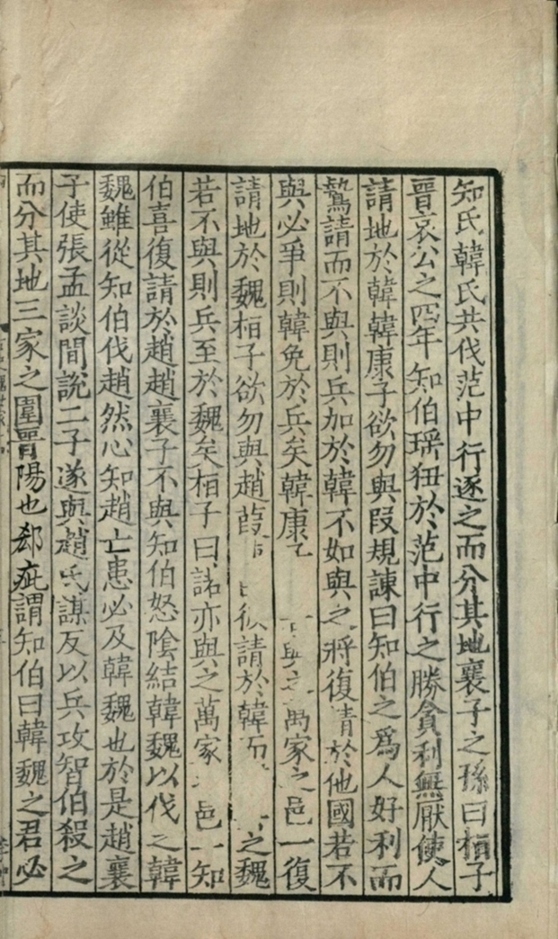 知氏韓氏共伐范中行遂之而分其地襄子之孫曰桓子
晉哀公之四年知伯瑶狃於范中行之勝貪利無厭使人
請地於韓韓康子欲勿與段規諫曰知伯之爲人好利而
驁請而不與則兵加於韓不如與之將復請於他國若不
與必爭則韓免於兵矣韓康子與之萬家之邑一復
請地於魏桓子欲勿與趙葭曰彼請於韓之魏
若不與則兵至於魏矣桓子曰諾亦與之萬家之邑一知
伯喜復請於趙趙襄子不與知伯怒陰結韓魏以伐之韓
魏雖從知伯伐趙然心知趙亡患必及韓魏也於是趙襄
子使張孟談間說二子遂與趙氏謀反以兵攻智伯殺之
而分其地三家之圍晉陽也郄疵謂知伯曰韓魏之君必